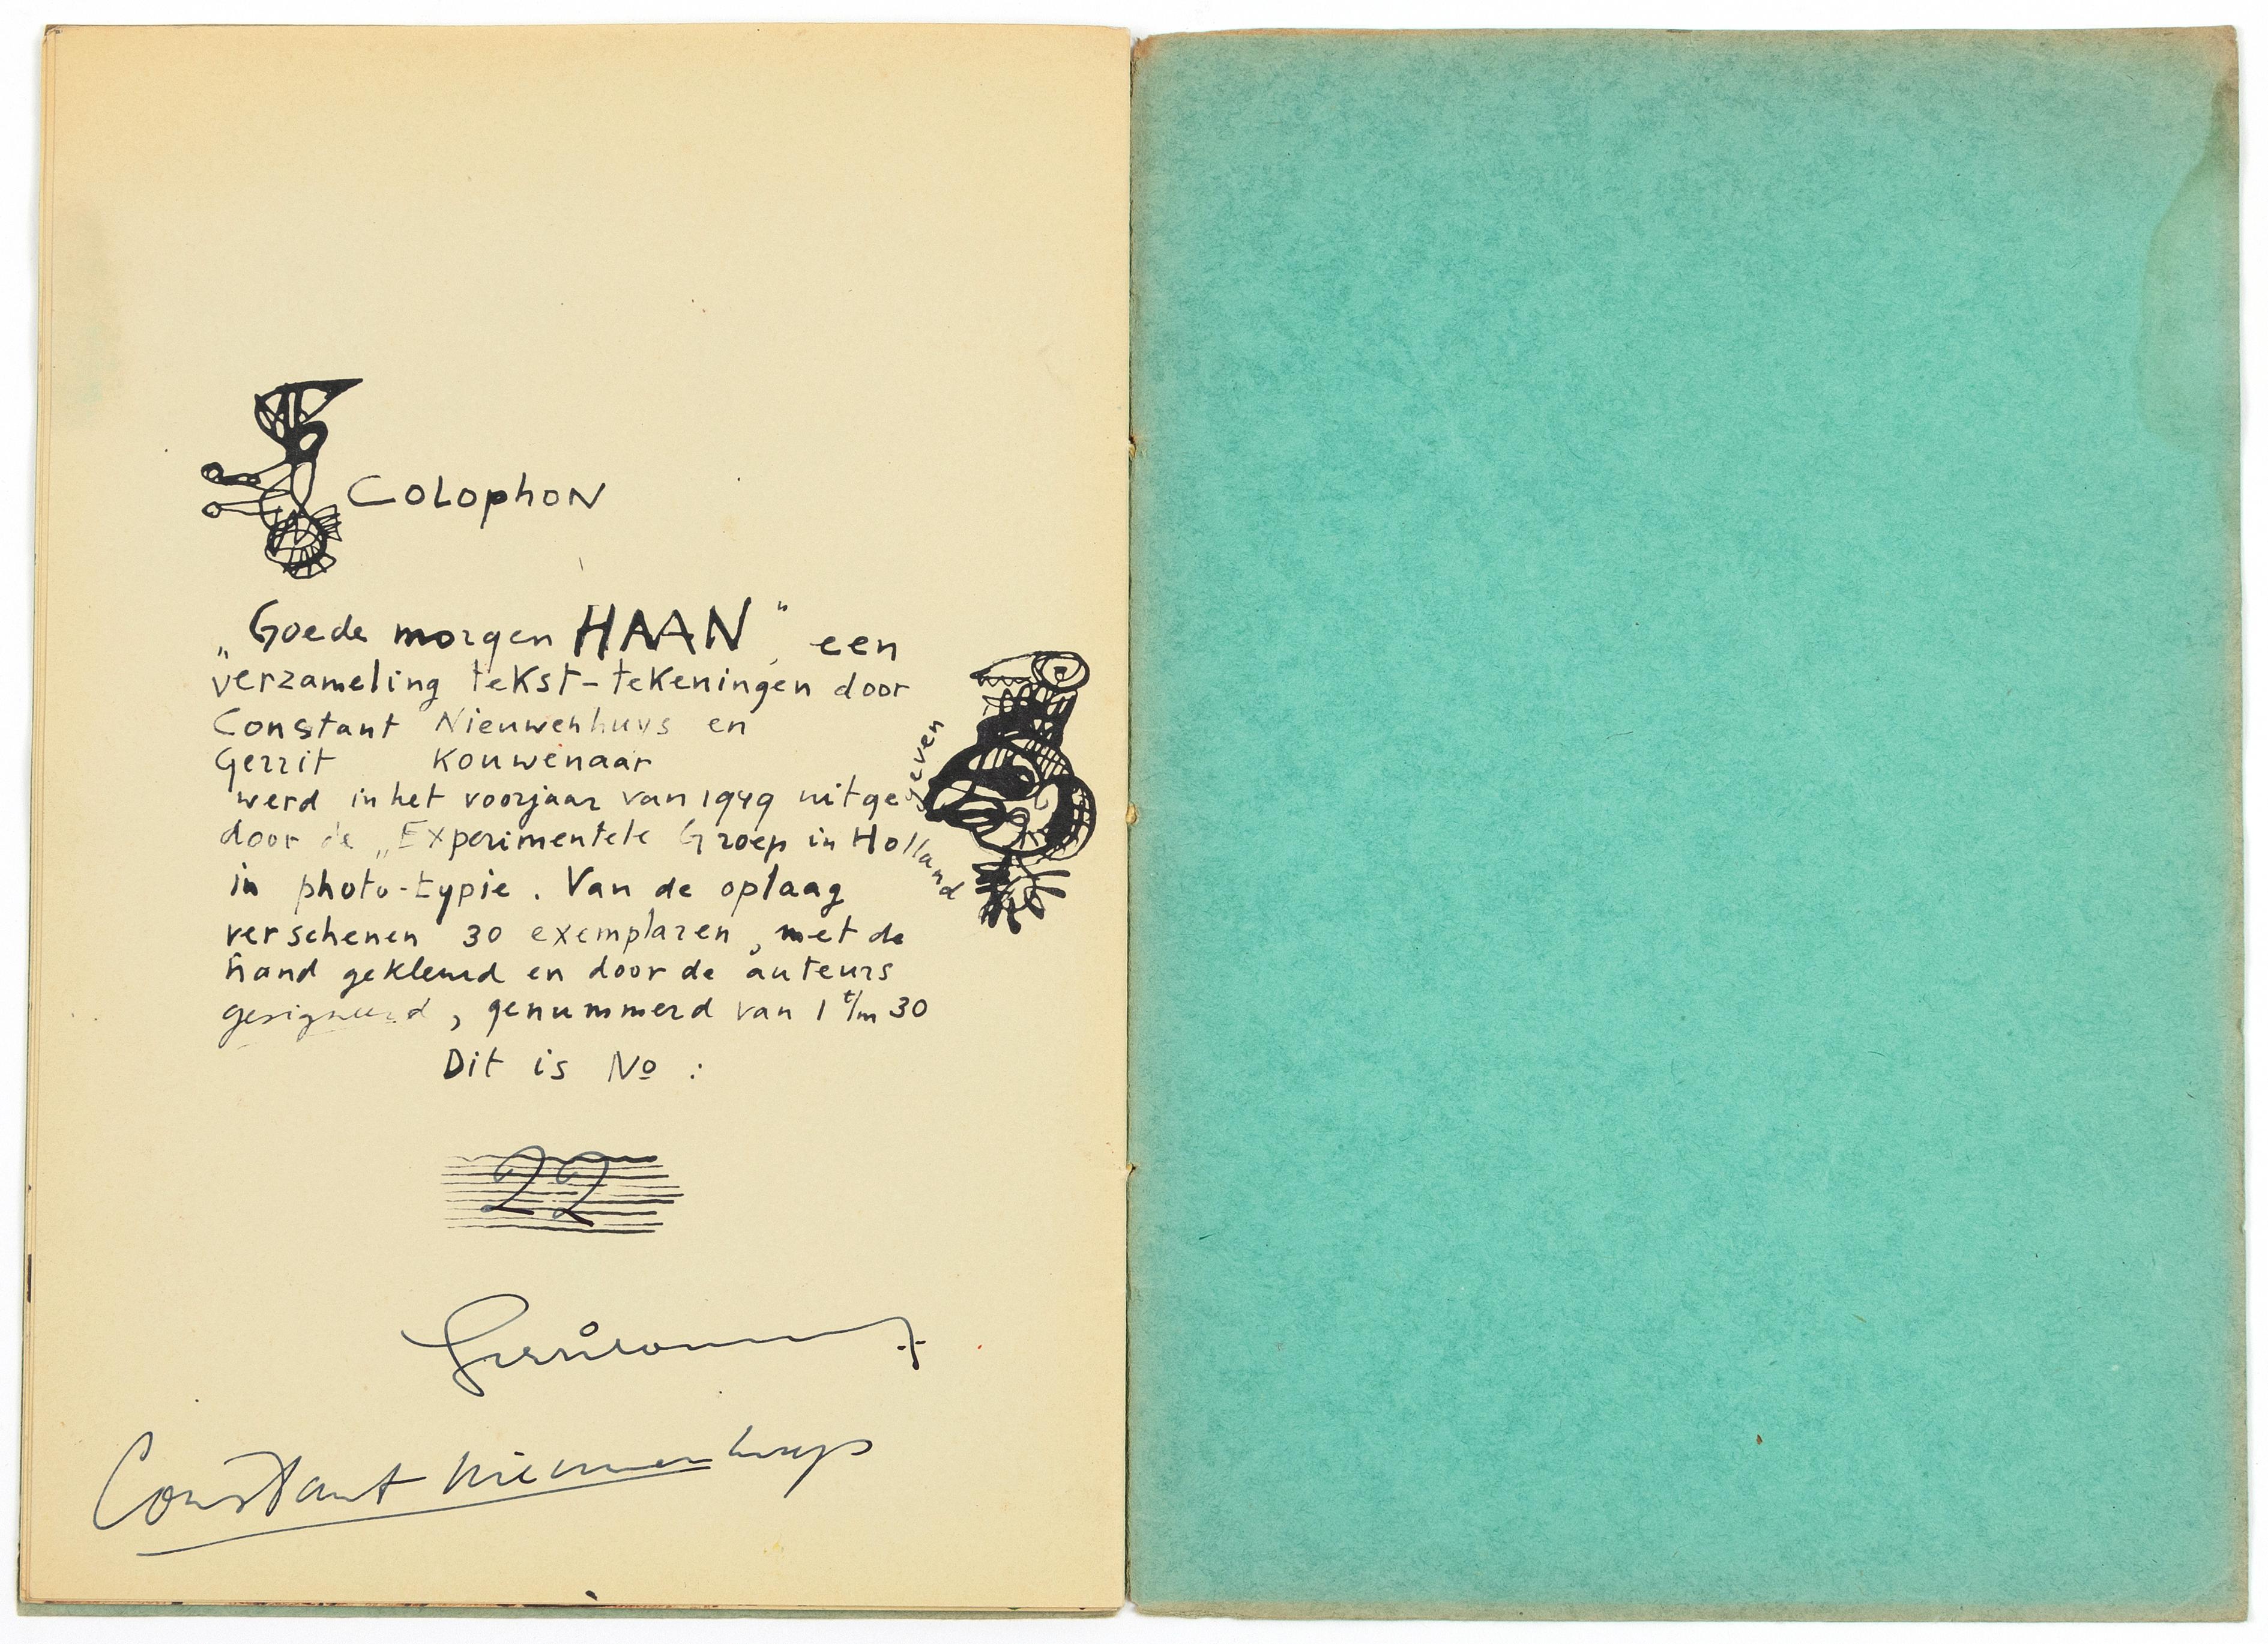 Colophon
„Goede morgen HAAN", een
verzameling tekst-tekeningen door
Constant Nieuwenhuys en
Gerrit Kouwenaar
werd in het voorjaar van 1949 uitgegeven
door de „Experimentele Groep in Holland
in photo-typie. Van de oplaag
verschenen 30 exemplaren, met de
hand gekleurd en door de auteurs
gesigneerd, genummerd van 1 t/m 30
Dit is No :
22
Constant Nieuwenhuys